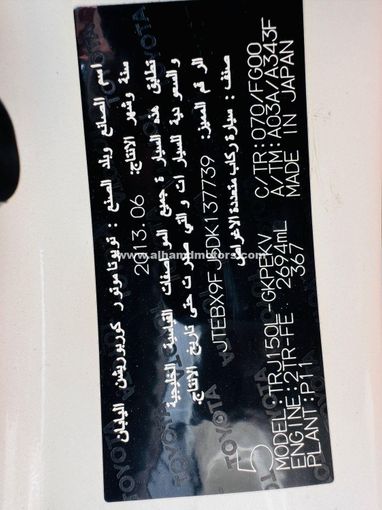 اسم الصانع وبلد الصنع : تويوتا موتور كوربوريشن اليابان
سنة وشهر الانتاج: 2013.06
تطابق هذه السيارة جميع المواصفات القياسية الخليجية
والسعودية للسيارات والتي صدرت حتى تاريخ الانتاج.
الرقم المميز: JTEBX9FJ5DK137739
صنف : سيارة ركاب متعددة الاغراض
MODEL:TRJ150L-GKPEKV C/TR:070/FG00
ENGINE:2TR-FE 2694mL A/TM:A03A/A343F
PLANT:P11 367 MADE IN JAPAN
5
TOYOTA TOYOTA TOYOTA
www.alhamdmotors.com